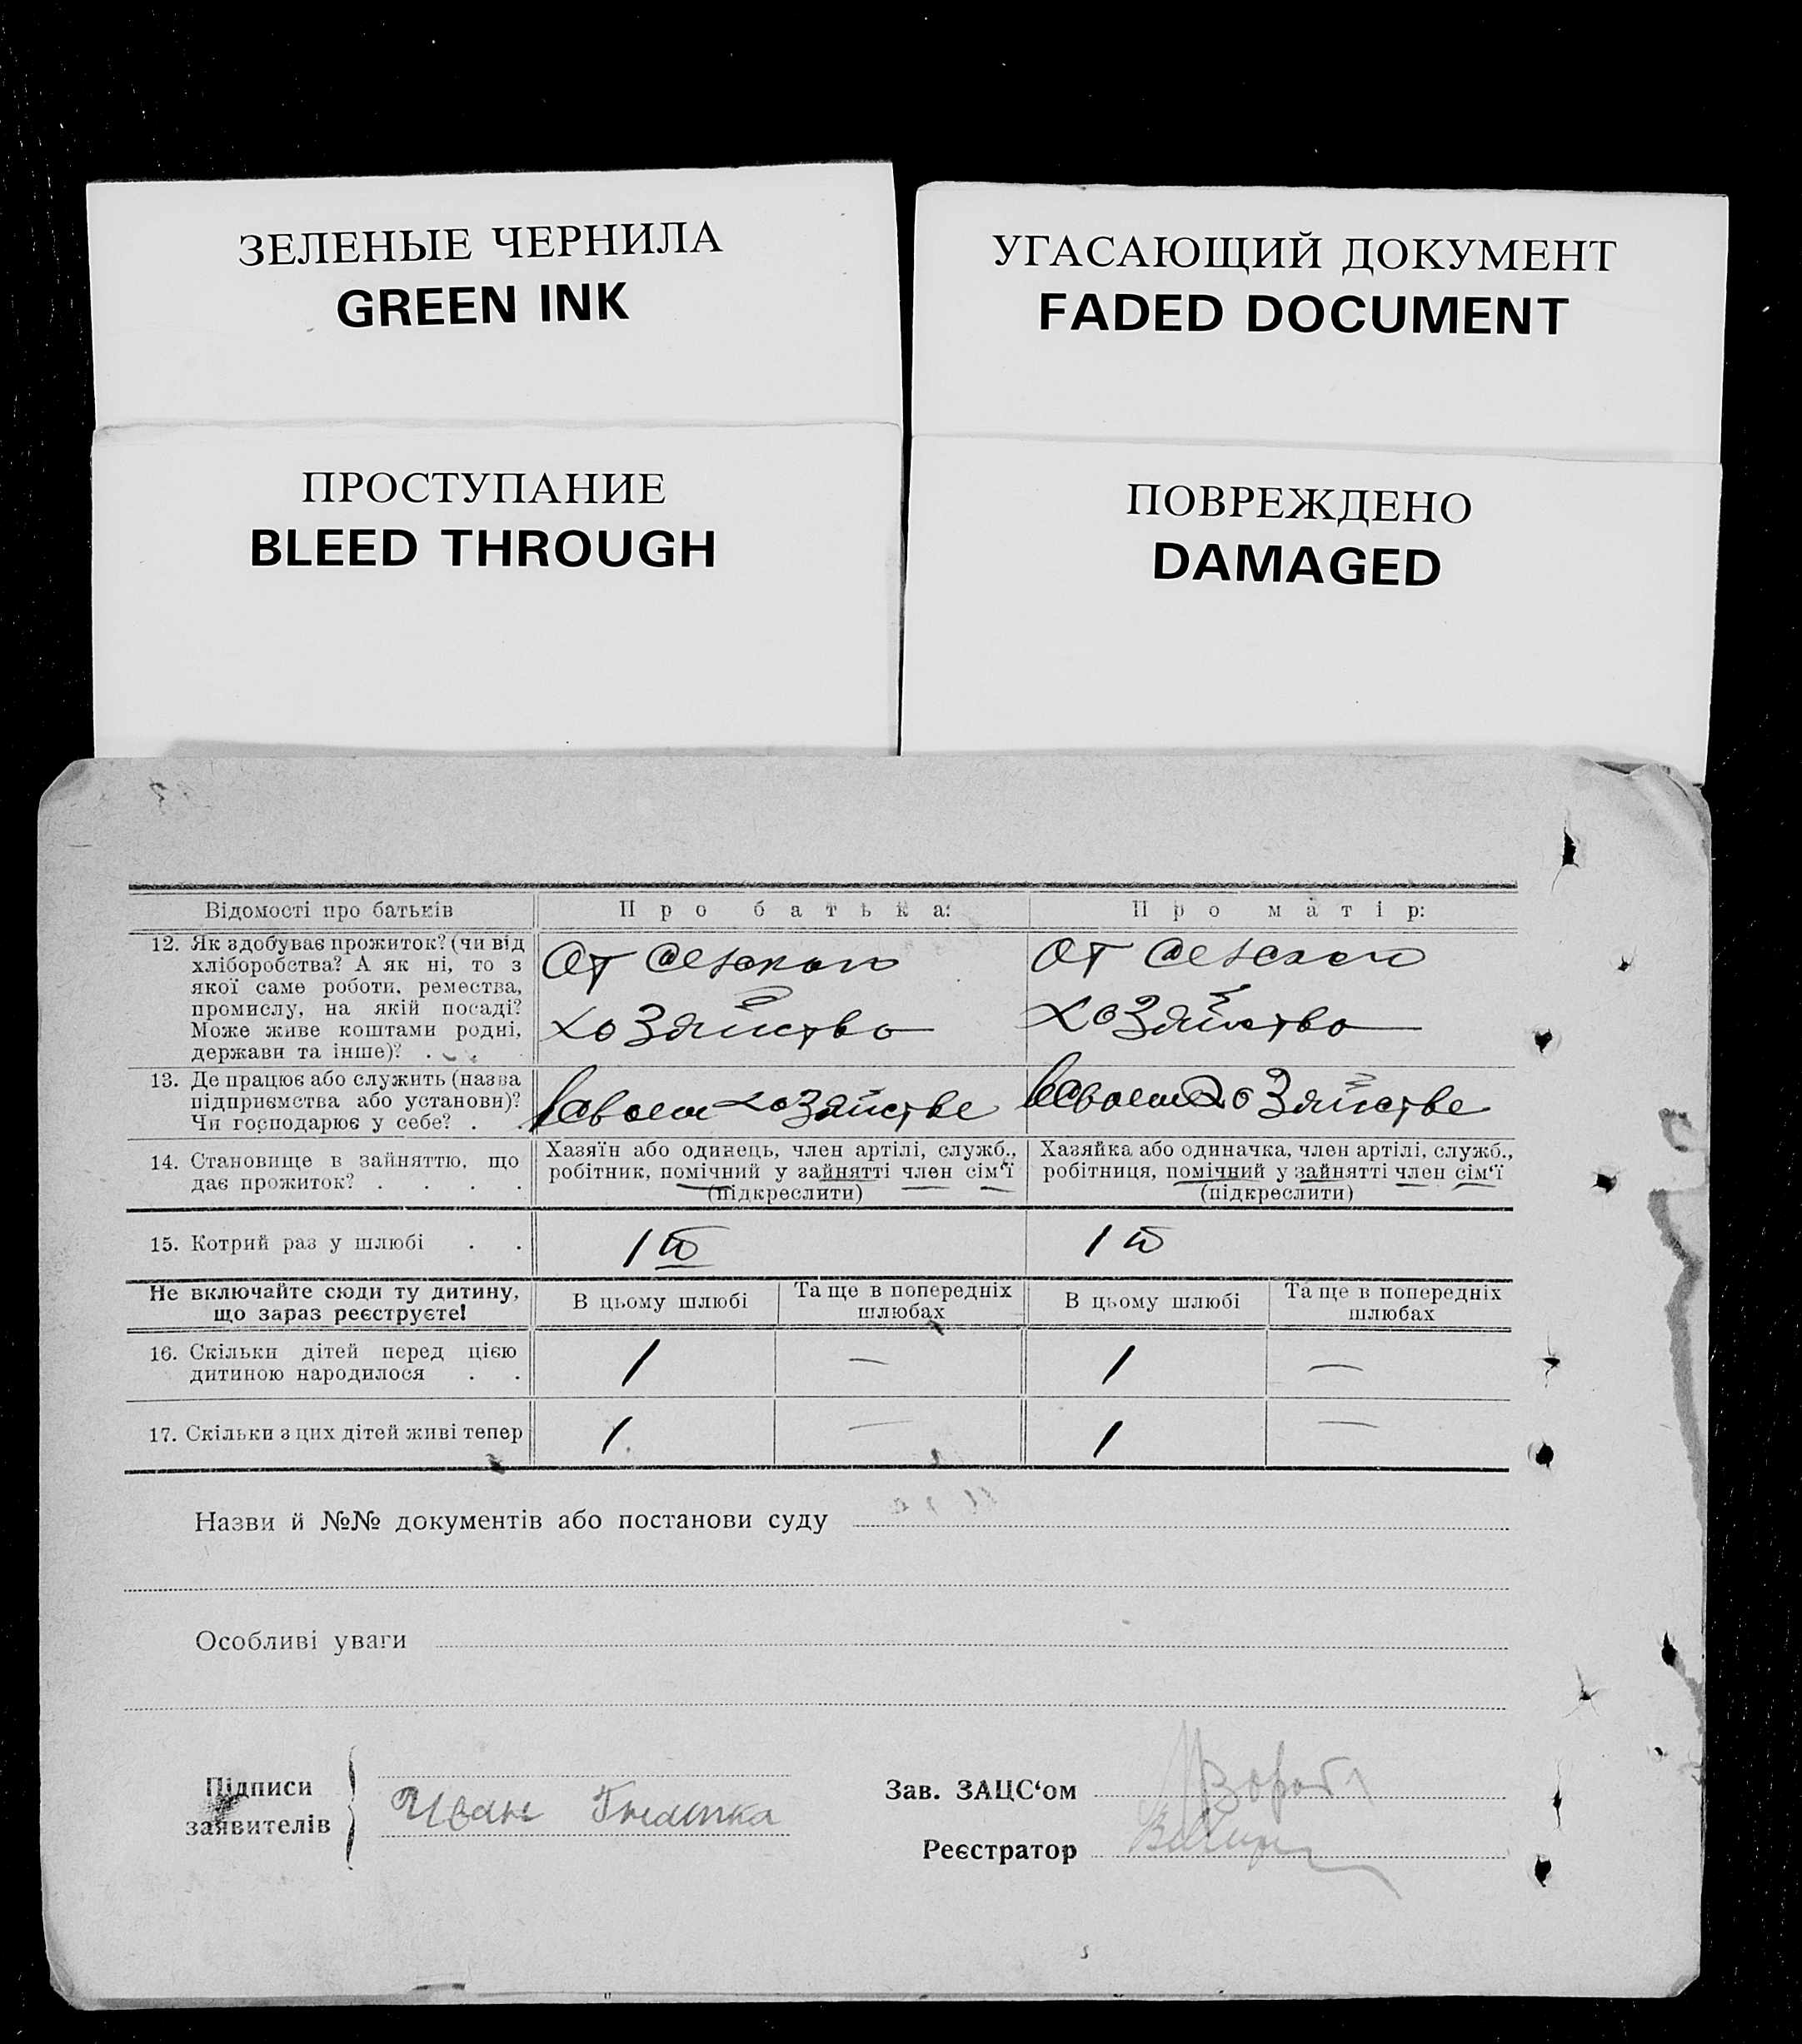 ЗЕЛЕНЫЕ ЧЕРНИЛА
GREEN INK
УГАСАЮЩИЙ ДОКУМЕНТ
FADED DOCUMENT
ПРОСТУПАНИЕ
BLEED THROUGH
ПОВРЕЖДЕНО
DAMAGED
Відомості про батьків
Про батька:
Про матір:
12. Як здобуває прожиток? (чи від
хліборобства? А як ні, то з
якої саме роботи, ремества,
промислу, на якій посаді?
Може живе коштами родні,
держави та інше)? .
От
хозяйство
От
хозяйство
13. Де працює або служить (назва
підприємства або установи)?
Чи господарює у себе? . .
всвоем хозяйстве
всвоем хозяйстве
14. Становище в зайняттю, що
дає прожиток? . . . .
Хазяїн або одинець, член артілі, служб.,
робітник, помічний у зайнятті член сім‘ї
(підкреслити)
Хазяйка або одиначка, член артілі, служб.,
робітниця, помічний у зайнятті член сім‘ї
(підкреслити)
15. Котрий раз у шлюбі . .
1й
1й
Не включайте сюди ту дитину,
що зараз реєструєте!
В цьому шлюбі
Та ще в попередніх
шлюбах
В цьому шлюбі
Та ще в попередніх
шлюбах
16. Скільки дітей перед цією
дитиною народилося . .
1
—
1
—
17. Скільки з цих дітей живі тепер
1
—
1
—
Назви й №№ документів або постанови суду
Особливі уваги
Підписи
заявителів
Иван
Зав. ЗАЦС‘ом
Реєстратор